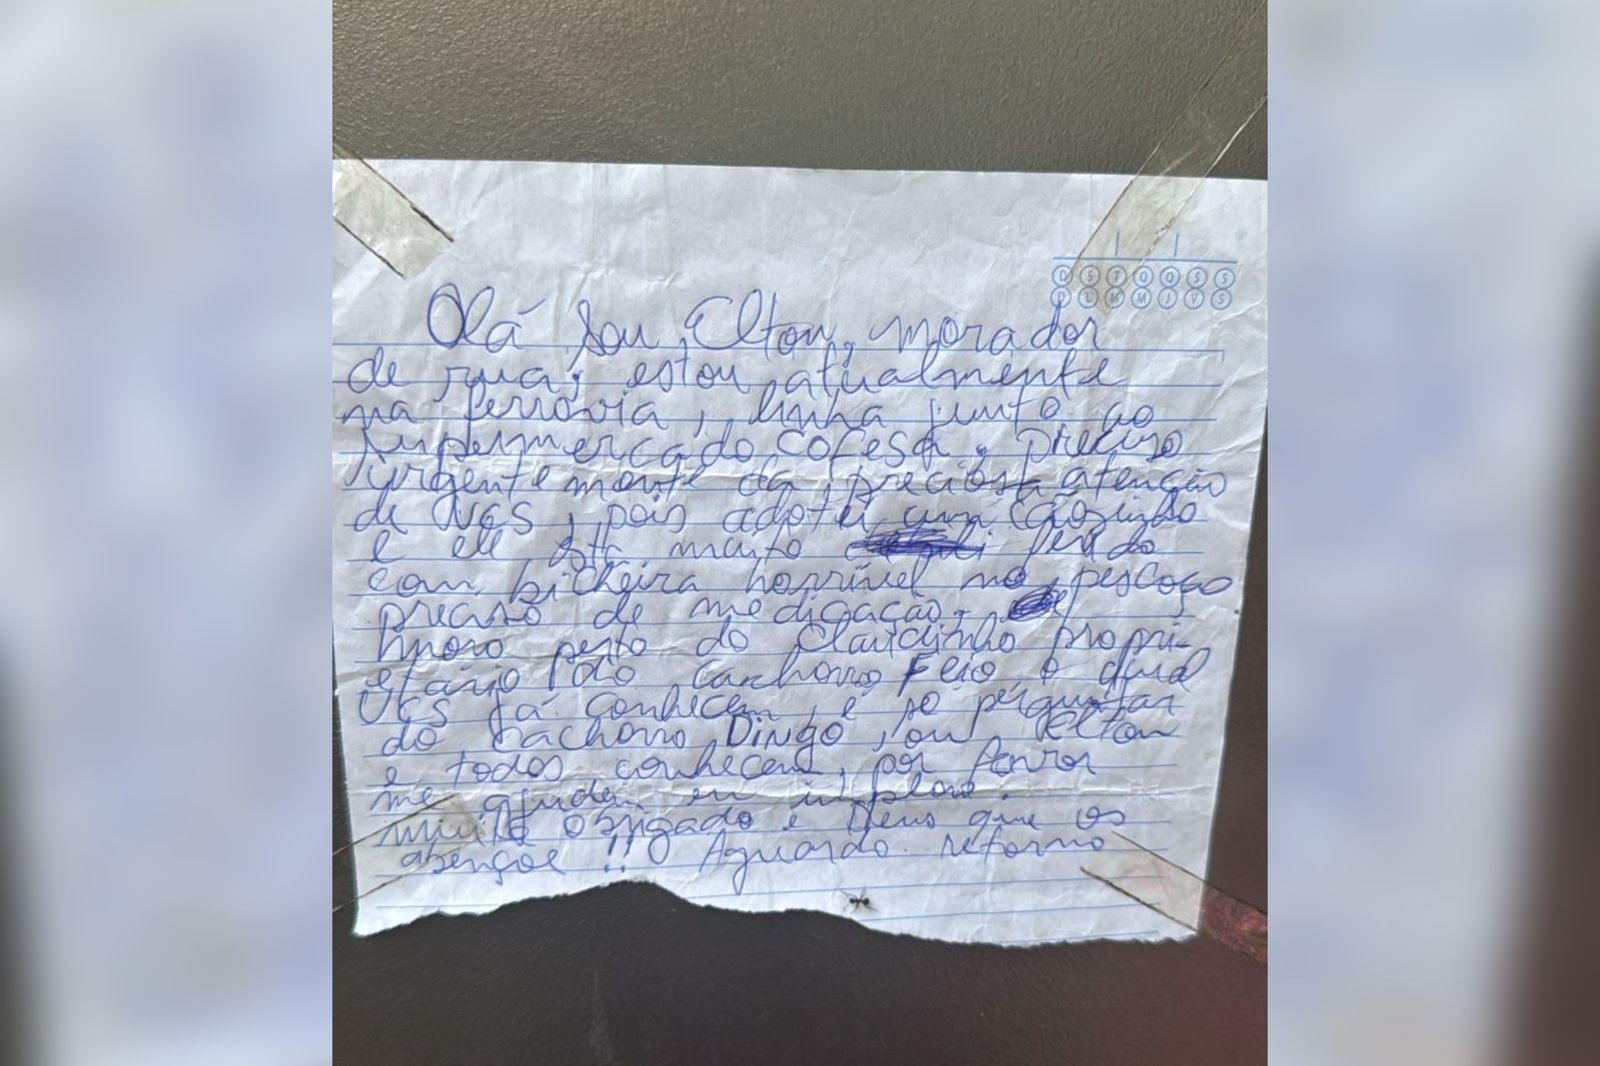 D S T Q Q S S
D L M M J V S
Olá sou Elton, morador
de rua; estou atualmente
na ferrovia, linha junto ao
supermercado COFESA. preciso
urgentemente da preciosa atenção
de vcs, pois adotei um cãozinho
e ele está muito ferido
com bicheira horrível no pescoço
preciso de medicação.
moro perto do Claudinho propri-
etário do cachorro Feio o qual
vcs já conhecem, é só perguntar
do cachorro DINGO, ou Elton
e todos conhecem, por favor
me ajudem eu imploro.
Muito obrigado e Deus que os
abençoe !! Aguardo retorno